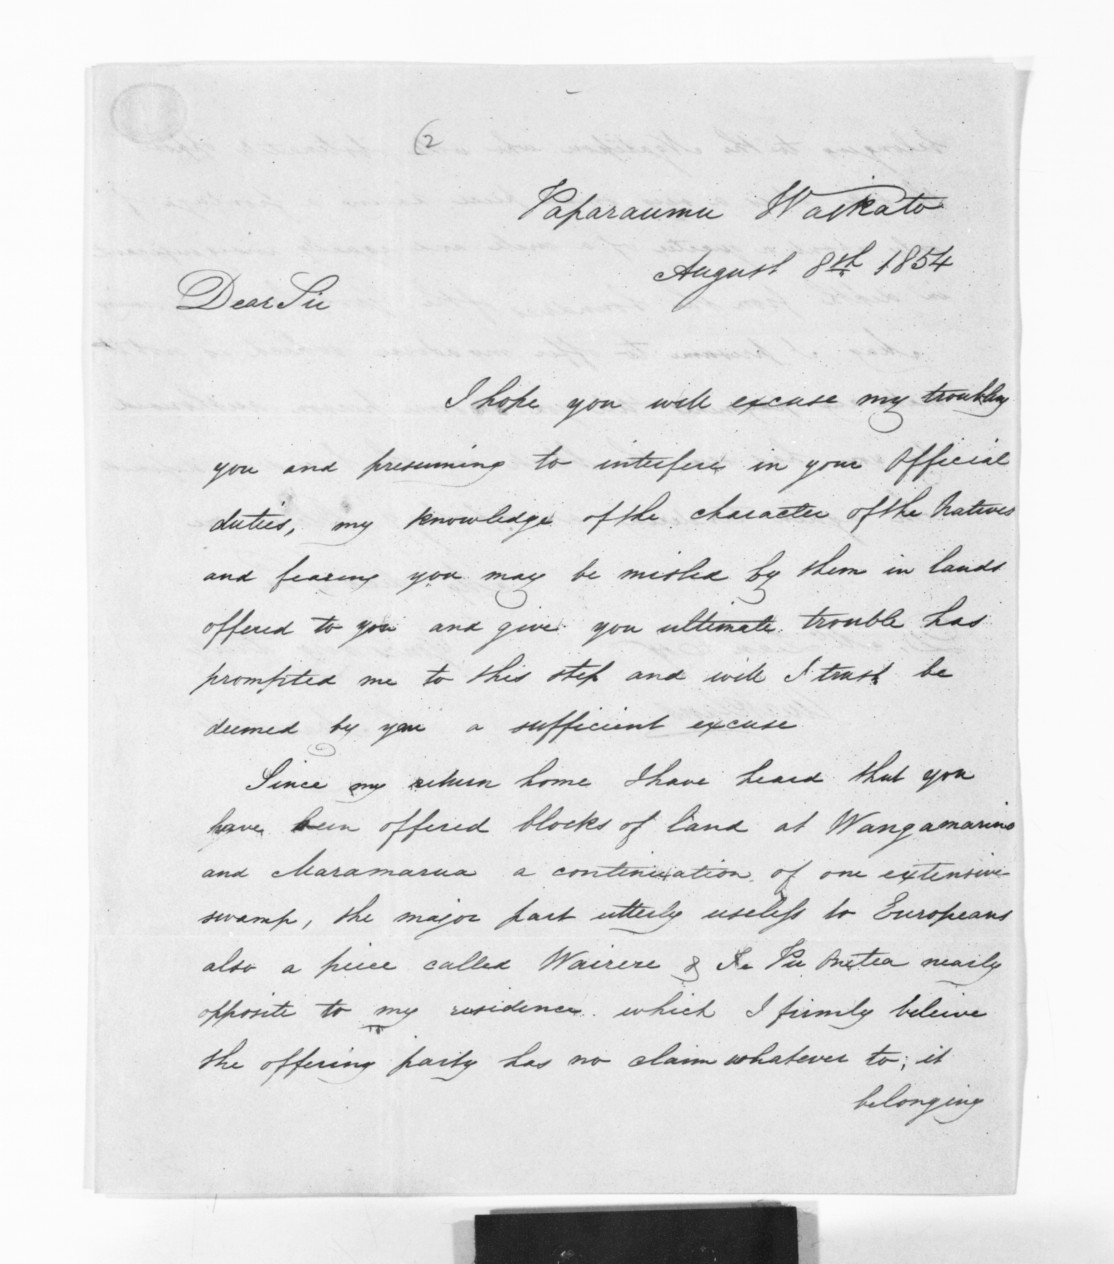 (2
Paparaumu Waikato
August 8th 1854
Dear Sir
I hope you will excuse my troubling
you and presuming to interfere in your Official
duties, my knowledge of the character of the Natives
and fearing you may be misled by them in lands
offered to you and give you ultimate trouble has
prompted me to this step and will I trust be
deemed by you a sufficient excuse
Since my return home I have heard that you
have been offered blocks of land at Wangamarino
and Maramarua a continuation of one extensive
swamp, the major part utterly useless to Europeans
also a piece called Wairere & Te Pu nearly
opposite to my residence which I firmly beleive
the offering party has no claim whatever to; it
belonging